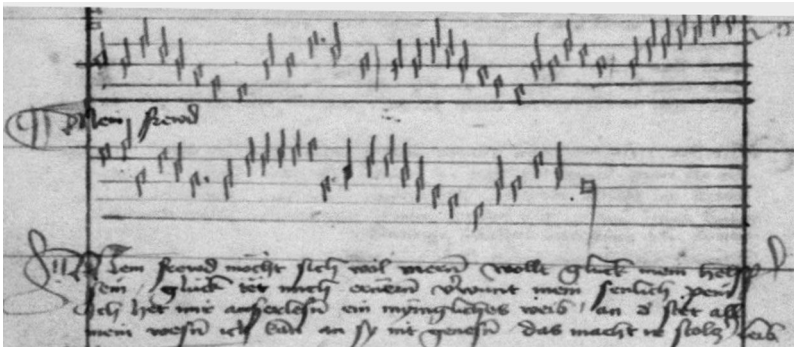 Mein frewd
Mein frewd mocht sich wol mern wollt gluck mein helff
sein / gluck tet mich ernern v'wunt mein senlich pein
Ich het mir auserlesn ein mynigliches weib / an d' stet all
mein wesn ich kan an sy nit genesn das macht ir stolz leib